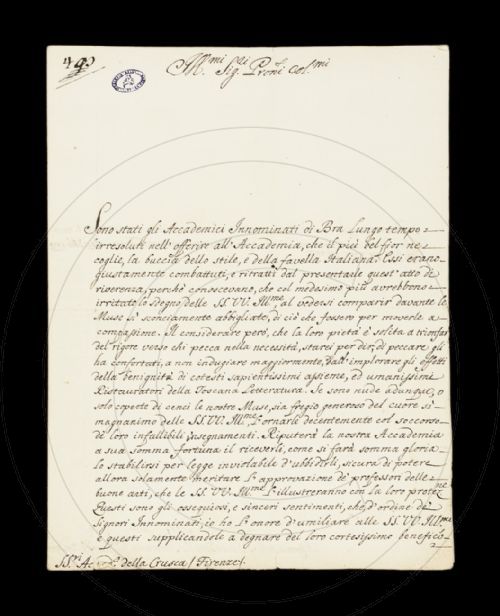 49
Ill.mi Sig.ri Proni Col.mi
Sono stati gli Accademici Innominati di Bra lungo tempo
irresoluti nell'offerire all'Accademia, che il più bel fior ne
coglie, la buccia dello stile, e della favella Italiana. Essi erano
giustamente combattuti, e ritratti dal presentarle quest'atto di
riverenza, perchè conoscevano, che col medesimo più avrebbono
irritato lo sdegno delle SS. VV. Ill.me al vedersi comparir davante le
Muse sì sconciamente abbigliate, di ciò che fossero per moverle a
compassione. Il considerare però, che la loro pietà è solita a trionfar
del rigore verso chi pecca nella necessità, starei per dir, di peccare gli
ha confortati, a non indugiare maggiormente, dall'implorare gli effetti
della benignità di cotesti sapientissimi assieme, ed umanissimi
Ristauratori della Toscana Letteratura. Se sono nude adunque, o
solo coperte di cenci le nostre Muse, sia fregio generoso del cuore
magnanimo delle SS. VV. Ill.me l'ornarle decentemente col soccorso
de' loro infallibili insegnamenti. Riputerà la nostra Accademia
a sua somma fortuna il riceverli, come si farà somma gloria
lo stabilirsi per legge inviolabile d'ubbidirli, sicura di potere
allora solamente meritare l'approvazione de' professori delle
buone arti, che le SS. VV. Ill.me l'illustreranno con la loro protez.ne
Questi sono gli ossequiosi, e sinceri sentimenti, che d'ordine de'
Signori Innominati, io ho l'onore d'umiliare alle SS. VV. Ill.me
e questi supplicandole a degnare del loro cortesissimo
SS.ri Accad.ci della Crusca / Firenze /